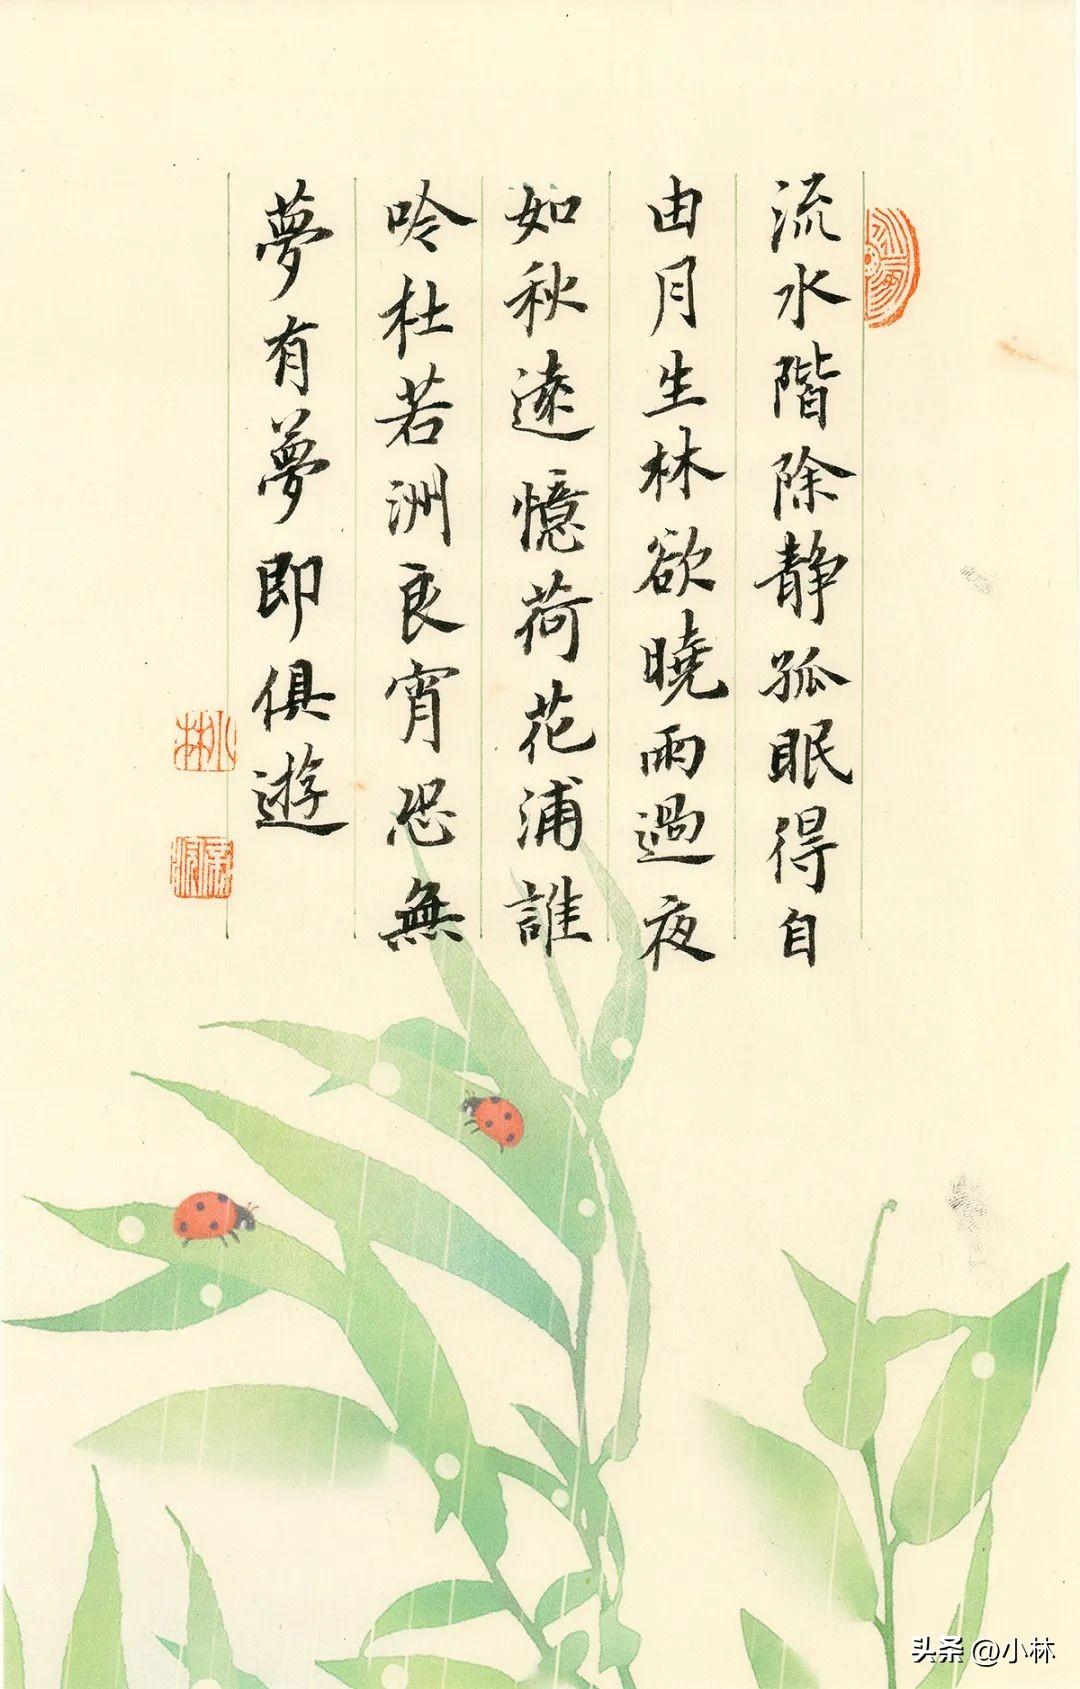 流水階除静孤眠得自
由月生林欲曉雨過夜
如秋遠憶荷花浦誰
吟杜若洲良宵恐無
夢有夢即俱遊
小林
头条 @小林